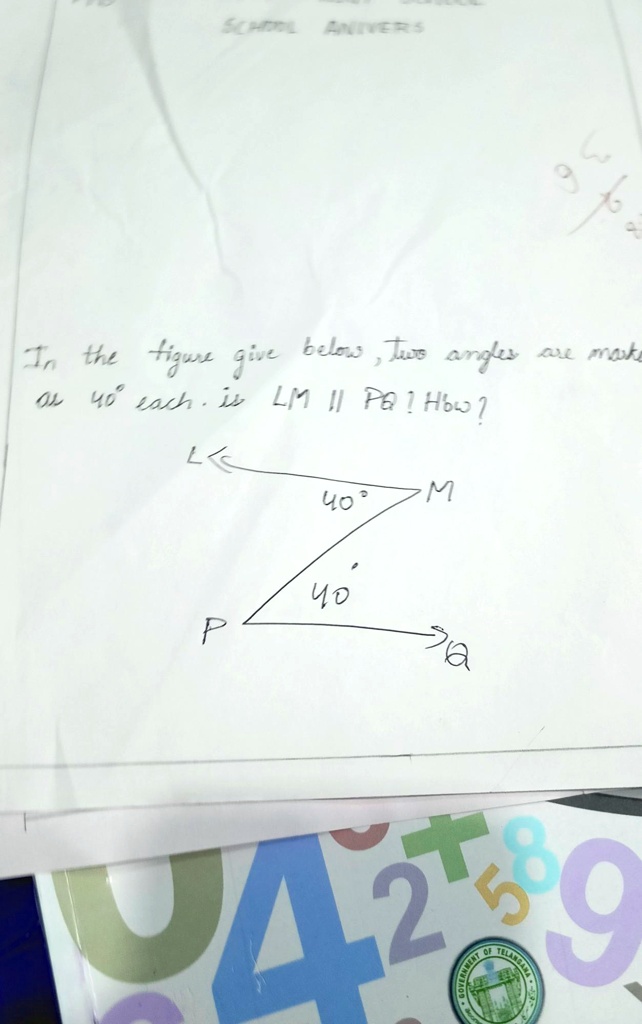 SCHOOL
SCHOOL ANIVERS
In the figure give below, two angles are marke
as 40° each. is LM || PQ? How?
L
M
40°
40°
P
Q
0 4 2 + 5 8 9
GOVERNMENT OF TELANGANA